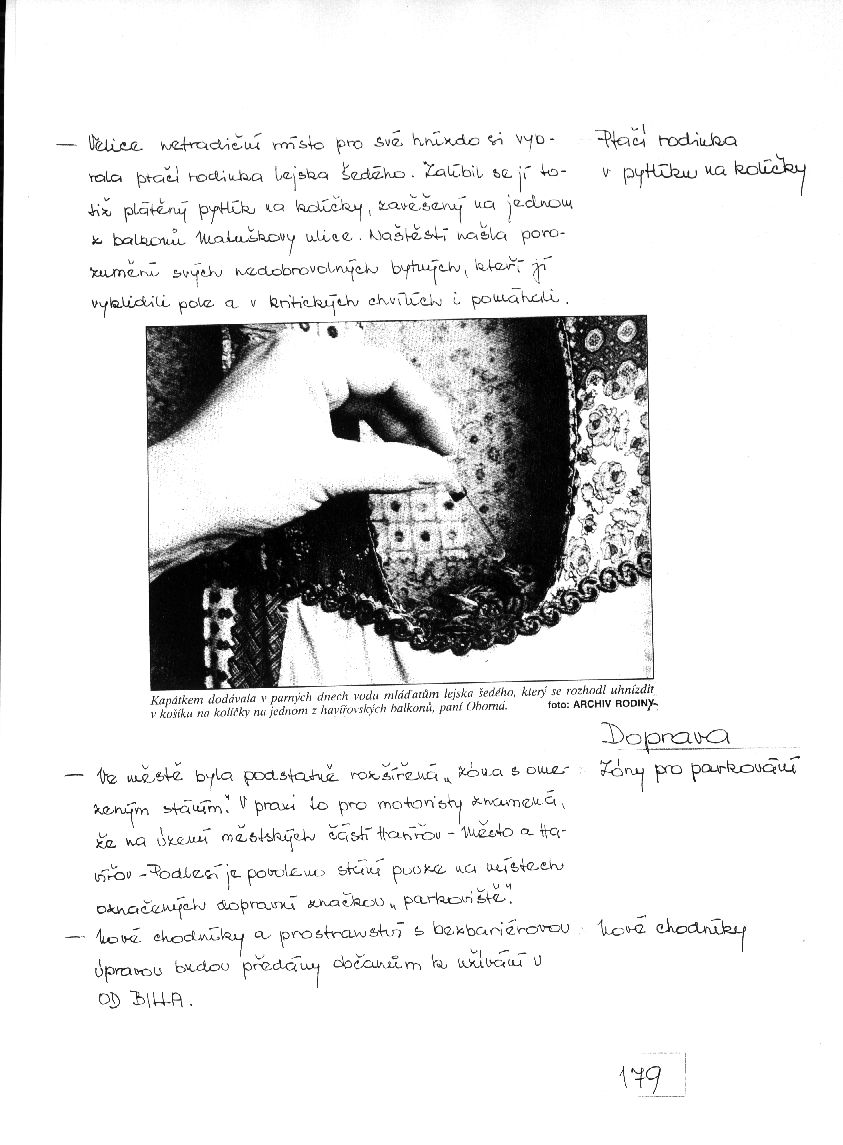 — Velice netradiční místo pro své hnízdo si vyb-
rala ptačí rodinka lejska šedého. Zalíbil se jí to-
tiž plátěný pytlík na kolíčky, zavěšený na jednom
z balkonů Matuškovy ulice. Naštěstí našla poro-
zumění svých nedobrovolných bytných, kteří jí
vyklidili pole a v kritických chvílích i pomáhali.
Ptačí rodinka
v pytlíku na kolíčky
Kapátkem dodávala v parných dnech vodu mláďatům lejska šedého, který se rozhodl uhnízdit
v košíku na kolíčky na jednom z havířovských balkonů, paní Oborná. foto: ARCHIV RODINY
Doprava
— Ve městě byla podstatně rozšířená „zóna s ome-
zeným stáním“. V praxi to pro motoristy znamená,
že na území městských částí Havířov - Město a Ha-
vířov - Podlesí je povoleno stání pouze na místech
označených dopravní značkou „parkoviště“.
Zóny pro parkování
— Nové chodníky a prostranství s bezbariérovou
úpravou budou předány občanům k užívání u
OD BILLA.
Nové chodníky
179